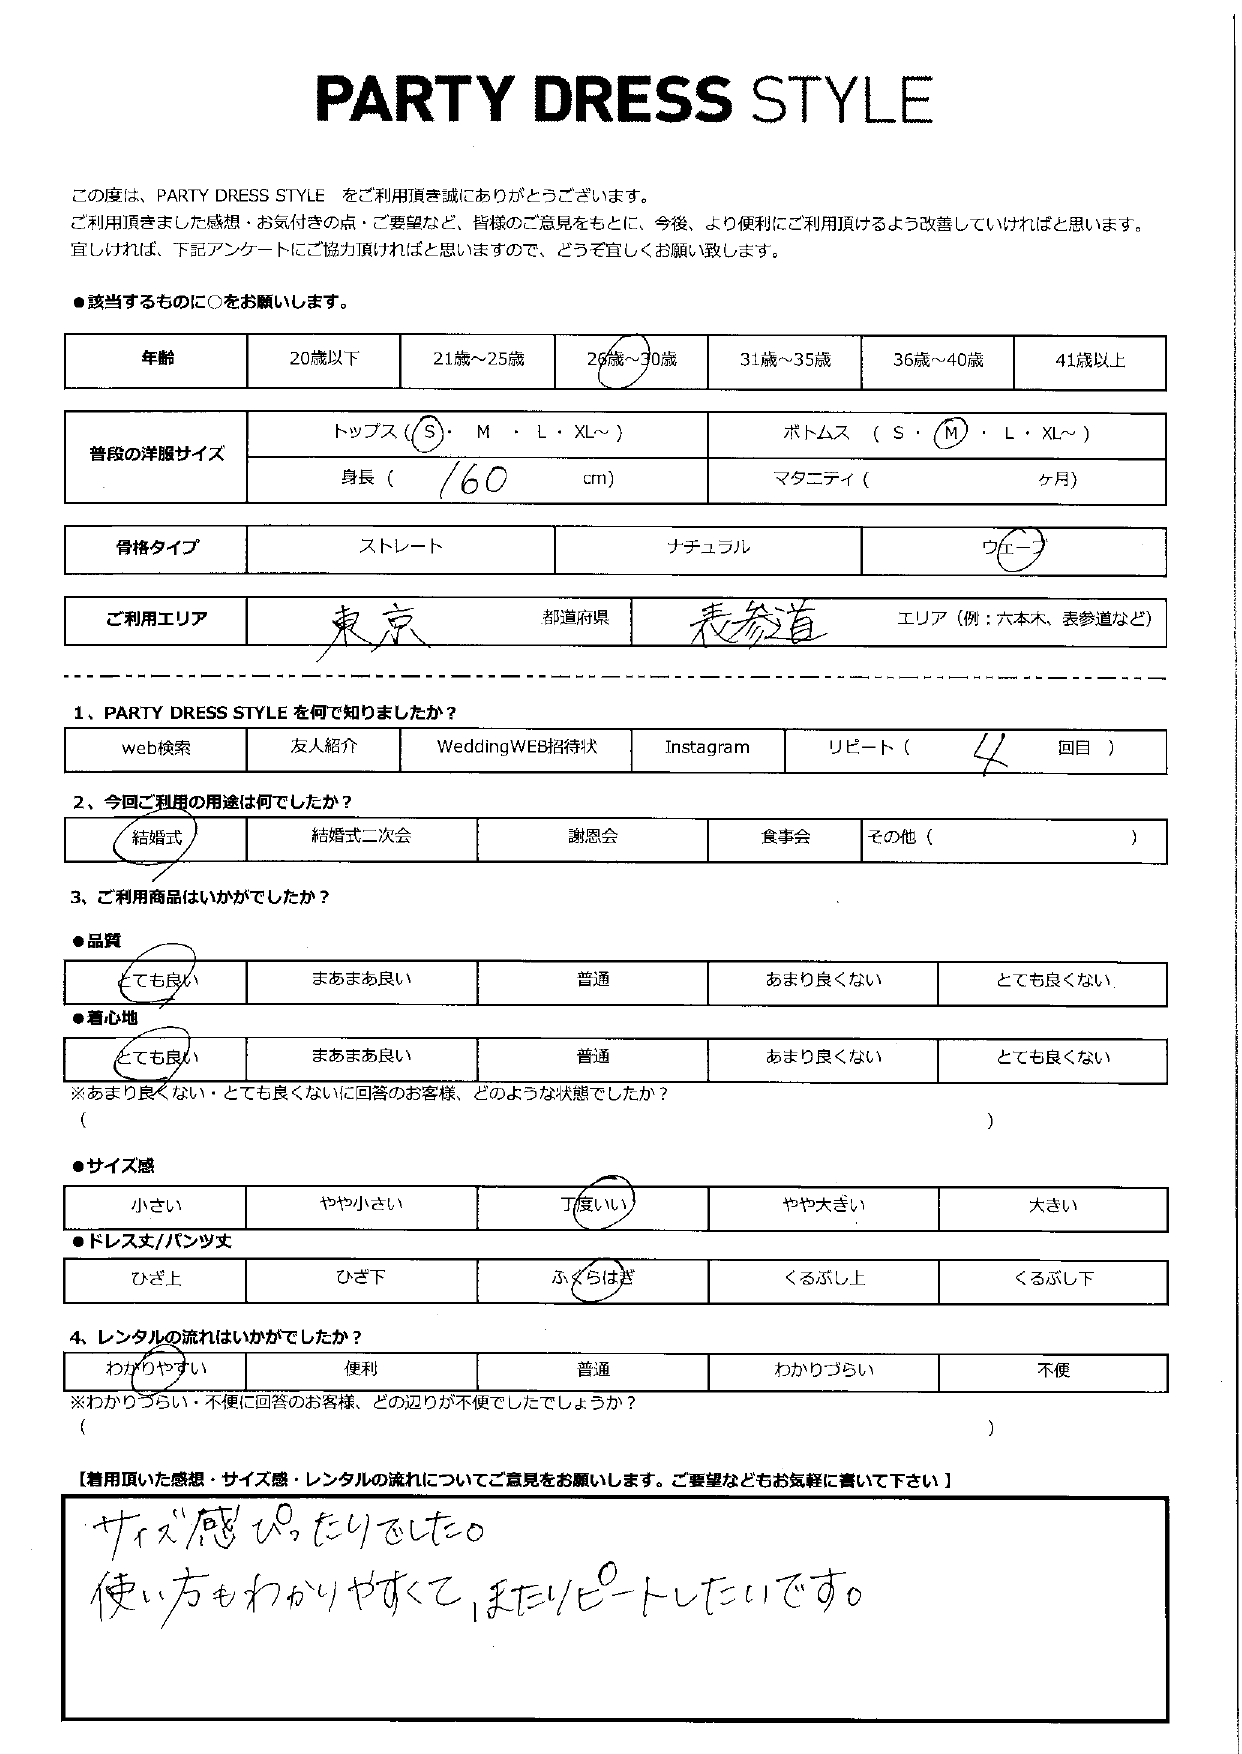 PARTY DRESS STYLE
この度は、PARTY DRESS STYLE をご利用頂き誠にありがとうございます。
ご利用頂きました感想・お気付きの点・ご要望など、皆様のご意見をもとに、今後、より便利にご利用頂けるよう改善していければと思います。
宜しければ、下記アンケートにご協力頂ければと思いますので、どうぞ宜しくお願い致します。
●該当するものに○をお願いします。
年齢 20歳以下 21歳～25歳 26歳～30歳 31歳～35歳 36歳～40歳 41歳以上
普段の洋服サイズ
トップス (S・ M ・ L・ XL～ ) ボトムス ( S・ M ・ L・ XL～ )
身長 ( 160 cm) マタニティ ( ヶ月)
骨格タイプ ストレート ナチュラル ウェーブ
ご利用エリア 東京 都道府県 表参道 エリア（例：六本木、表参道など）
1、PARTY DRESS STYLE を何で知りましたか？
web検索 友人紹介 WeddingWEB招待状 Instagram リピート ( 4 回目 )
2、今回ご利用の用途は何でしたか？
結婚式 結婚式二次会 謝恩会 食事会 その他 ( )
3、ご利用商品はいかがでしたか？
●品質
とても良い まあまあ良い 普通 あまり良くない とても良くない
●着心地
とても良い まあまあ良い 普通 あまり良くない とても良くない
※あまり良くない・とても良くないに回答のお客様、どのような状態でしたか？
( )
●サイズ感
小さい やや小さい 丁度いい やや大きい 大きい
●ドレス丈/パンツ丈
ひざ上 ひざ下 ふくらはぎ くるぶし上 くるぶし下
4、レンタルの流れはいかがでしたか？
わかりやすい 便利 普通 わかりづらい 不便
※わかりづらい・不便に回答のお客様、どの辺りが不便でしたでしょうか？
( )
【着用頂いた感想・サイズ感・レンタルの流れについてご意見をお願いします。ご要望などもお気軽に書いて下さい 】
サイズ感ぴったりでした。
使い方もわかりやすくて、またリピートしたいです。